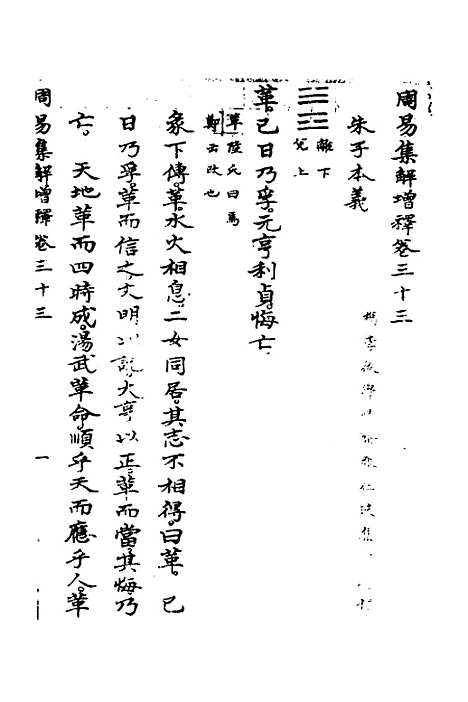 周易集解增釋卷三十三
朱子本義
離下
兌上
革已日乃孚元亨利貞悔亡
革陸氏曰馬
鄭云改也
彖下傳革水火相息二女同居其志不相得曰革已
日乃孚革而信之文明以說大亨以正革而當其悔乃
亡天地革而四時成湯武革命順乎天而應乎人革
周易集解增釋卷三十三
一